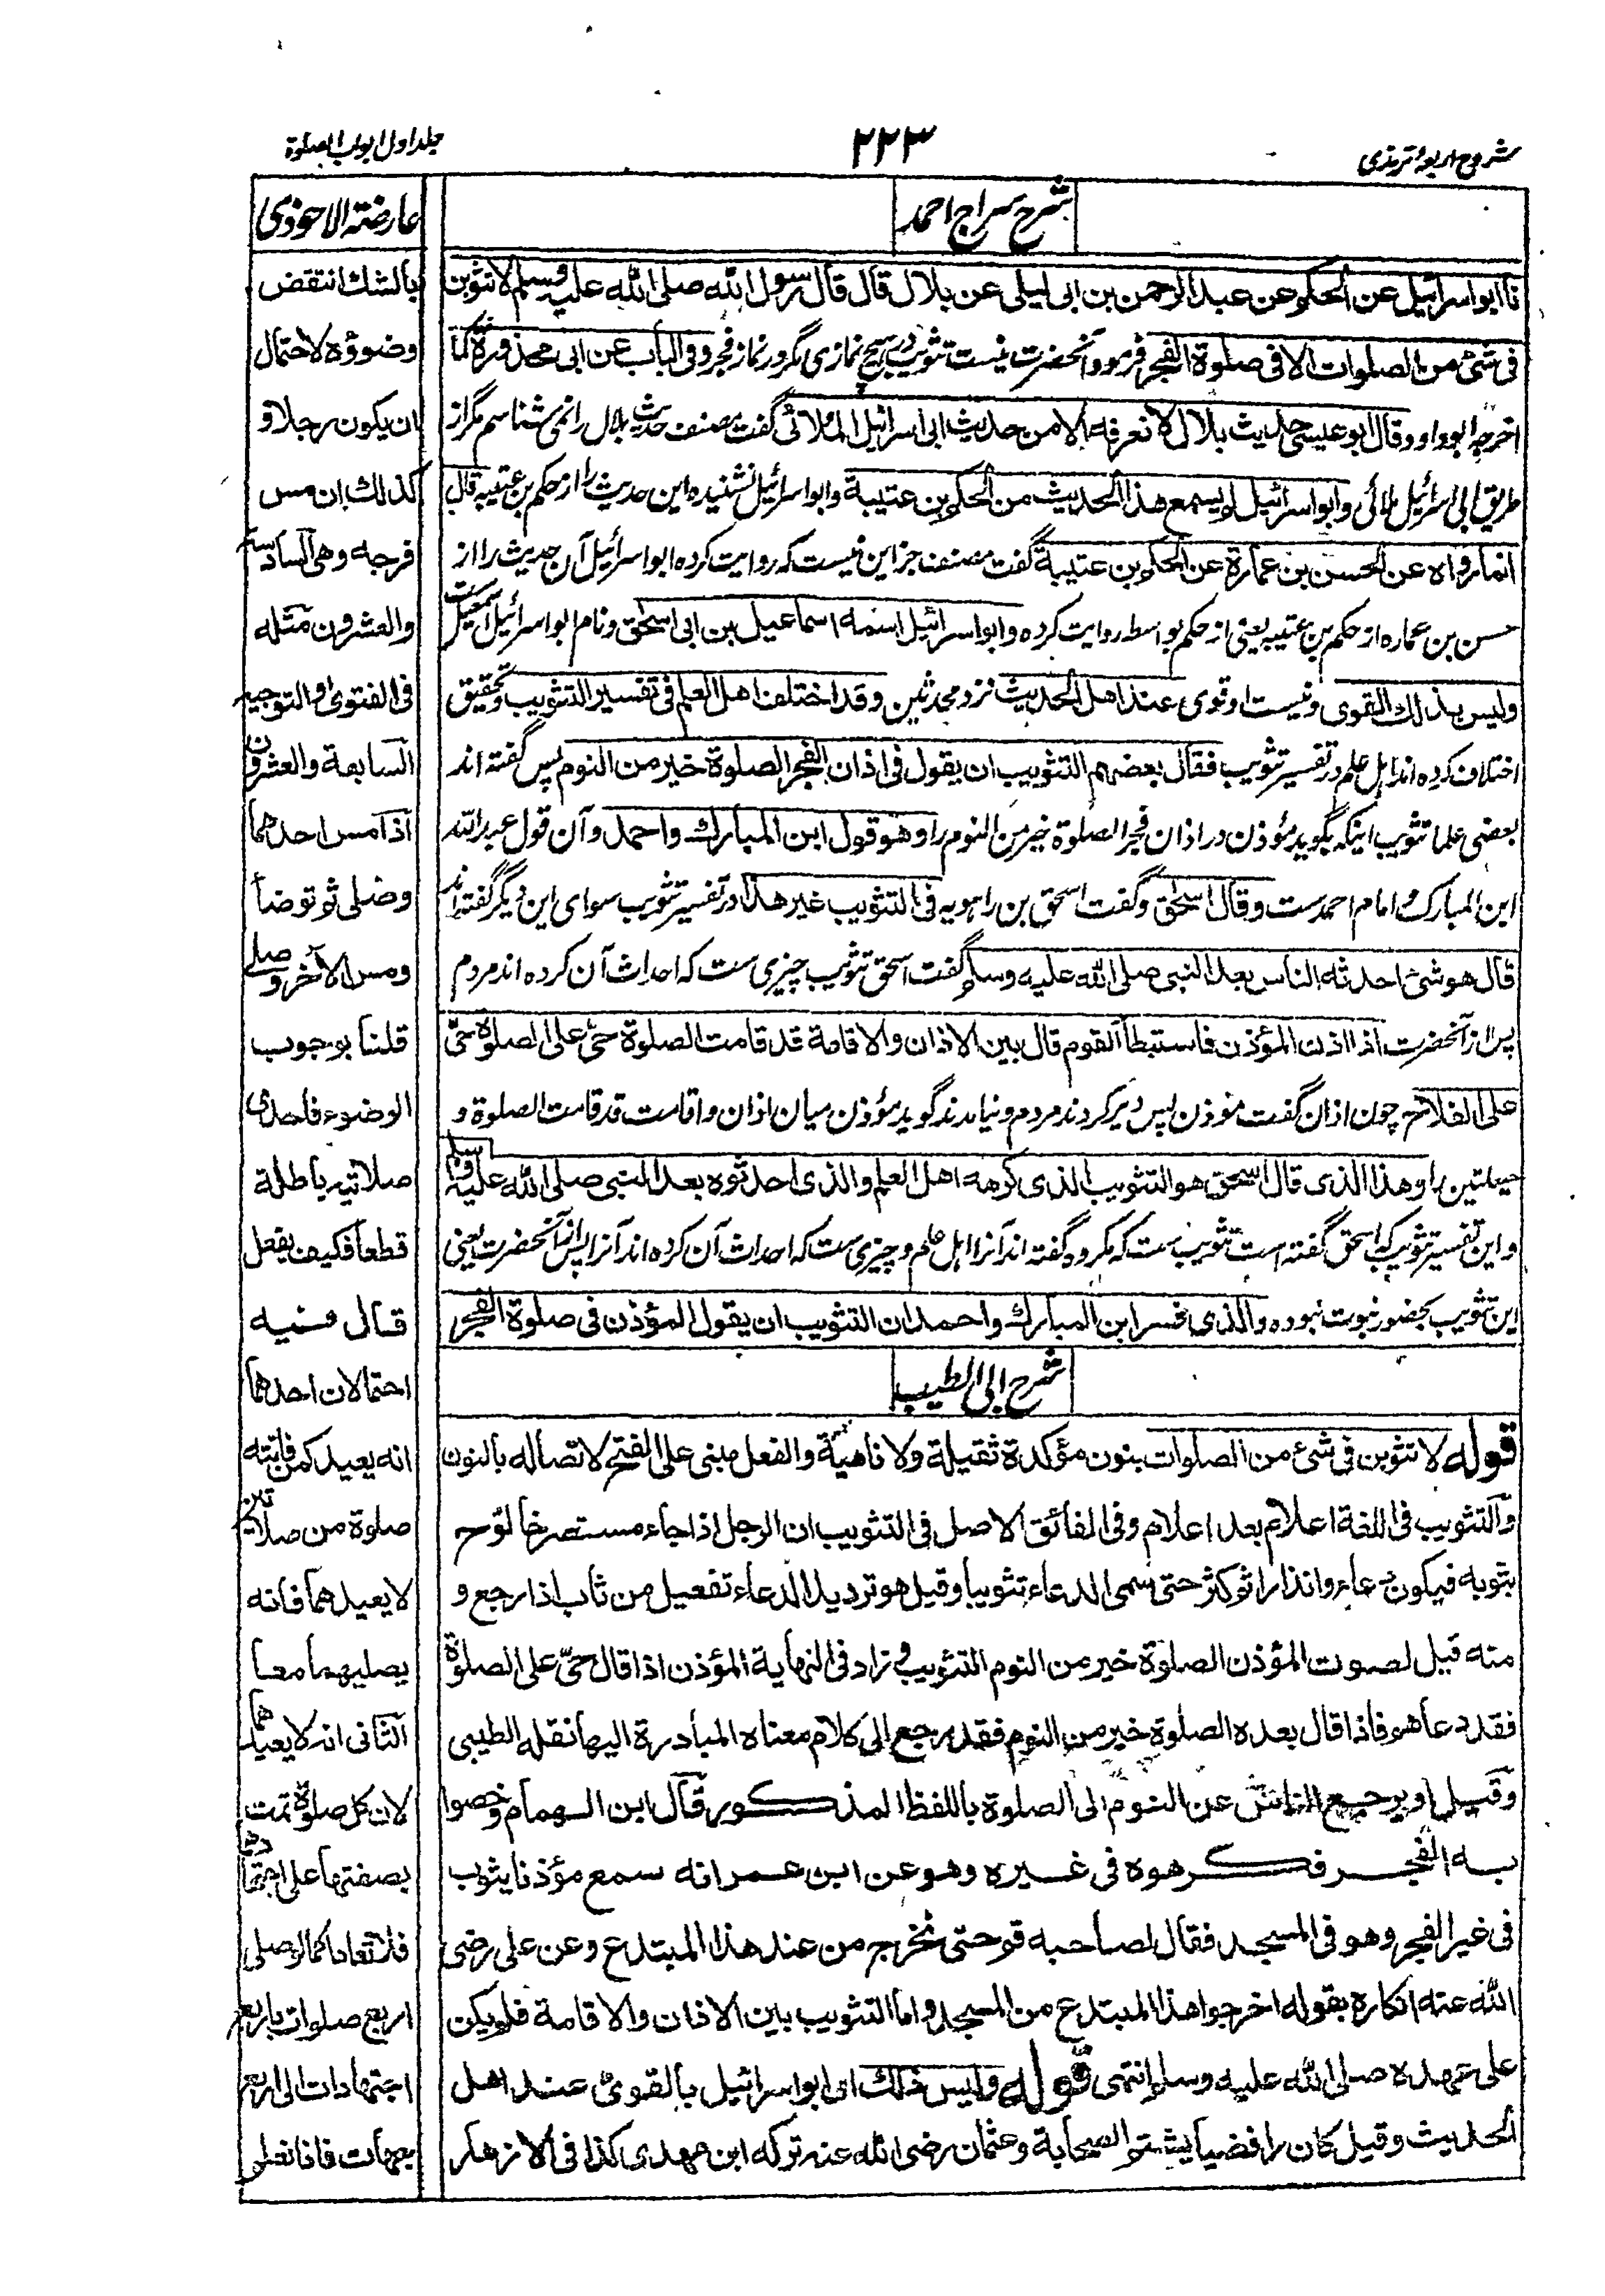 شروح اربعۂ ترمذی
۲۲۳
جلد اول ابواب الصلوة
شرح سراج احمد
نا ابو اسرائیل عن الحكم عن عبد الرحمن بن ابی لیلی عن بلال قال قال رسول الله صلی الله علیه وسلم لا تثوبن
فی شیٔ من الصلوات الا فی صلوة الفجر فرمود آنحضرت نیست تثویب در ہیچ نمازی مگر در نماز فجر وفی الباب عن ابی محذورة کما
اخرجه ابوداود وقال ابو عیسی حدیث بلال لا نعرفه الا من حدیث ابی اسرائیل الملائی گفت مصنف حدیث بلال را نمی شناسم مگر از
طریق ابی اسرائیل ملائی وابو اسرائیل لم یسمع هذا الحدیث من الحکم بن عتیبة وابو اسرائیل نشنیده این حدیث را از حکم بن عتیبه قال
انما رواه عن الحسن بن عمارة عن الحکم بن عتیبة گفت مصنف جز این نیست که روایت کرده ابو اسرائیل آن حدیث را از
حسن بن عماره از حکم بن عتیبه یعنی از حکم بواسطه روایت کرده وابو اسرائیل اسمه اسماعیل بن ابی اسحق ونام ابو اسرائیل اسمعیل ست
ولیس بذلك القوی ونیست او قوی عند اهل الحدیث نزد محدثین وقد اختلف اهل العلم فی تفسیر التثویب وتحقیق
اختلاف کرده اند اہل علم در تفسیر تثویب فقال بعضهم التثویب ان یقول فی اذان الفجر الصلوة خیر من النوم پس گفته اند
بعضی علما تثویب اینکه بگوید مؤذن در اذان فجر الصلوة خیر من النوم را وهو قول ابن المبارك واحمد وآن قول عبد الله
ابن المبارک و امام احمدست وقال اسحق وگفت اسحق بن راہویه فی التثویب غیر هذا در تفسیر تثویب سوای این دیگر گفته اند
قال هو شیٔ احدثه الناس بعد النبی صلی الله علیه وسلم گفت اسحق تثویب چیزی ست که احداث آن کرده اند مردم
پس از آنحضرت اذا اذن المؤذن فاستبطأ القوم قال بین الاذان والاقامة قد قامت الصلوة حیّ علی الصلوة حیّ
علی الفلاح چون اذان گفت مؤذن پس دیر کردند مردم ونیامدند گوید مؤذن میان اذان واقامت قد قامت الصلوة و
حیعلتین را وهذا الذی قال اسحق هو التثویب الذی کرهه اهل العلم والذی احدثوه بعد النبی صلی الله علیه وسلم
واین تفسیر تثویب که اسحق گفته است تثویب ست که مکروه گفته اند آنرا اہل علم و چیزی ست که احداث آن کرده اند آنرا پس از آنحضرت یعنی
این تثویب بحضور نبوت نبوده والذی فسر ابن المبارك واحمد ان التثویب ان یقول المؤذن فی صلوة الفجر
شرح ابی الطیب
قوله لا تثوبن فی شیٔ من الصلوات بنون مؤکدة ثقیلة ولا ناهیة والفعل مبنی علی الفتح لاتصاله بالنون
والتثویب فی اللغة اعلام بعد اعلام وفی الفائق الاصل فی التثویب ان الرجل اذا جاء مستصرخا لوّح
بثوبه فیکون دعاء وانذارا ثم کثر حتی سمی الدعاء تثویبا وقیل هو تردید الدعاء تفعیل من ثاب اذا رجع و
منه قیل لصوت المؤذن الصلوة خیر من النوم التثویب وزاد فی النهایة المؤذن اذا قال حیّ علی الصلوة
فقد دعاهم فاذا قال بعده الصلوة خیر من النوم فقد رجع الی کلام معناه المبادرة الیها نقله الطیبی
وقیل او یرجع الناس عن النوم الی الصلوة باللفظ المذکور قال ابن الهمام وخصوا
به الفجر فکرهوه فی غیره وهو عن ابن عمر انه سمع مؤذنا یثوب
فی غیر الفجر وهو فی المسجد فقال لصاحبه قم حتی نخرج من عند هذا المبتدع وعن علی رضی
الله عنه انکاره بقوله اخرجوا هذا المبتدع من المسجد واما التثویب بین الاذان والاقامة فلم یکن
علی عهده صلی الله علیه وسلم انتهی قوله ولیس ذلك ای ابو اسرائیل بالقویّ عند اهل
الحدیث وقیل کان رافضیا یشتم الصحابة وعثمان رضی الله عنه ترکه ابن مهدی کذا فی الازهار
عارضة الاحوذی
بالشك انتقض
وضوؤه لاحتمال
ان یکون رجلا و
کذلك ان مس
فرجه وهی السادسة
والعشرون مثله
فی الفتوی والتوجیه
السابعة والعشرون
اذا مس احدهما
وصلی ثم توضأ
ومس الآخر وصلی
قلنا بوجوب
الوضوء فاحدی
صلاتیه باطلة
قطعا فکیف یفعل
قال فیه
احتمالان احدهما
انه یعید کمن فاتته
صلوة من صلاتین
لا یعیدهما فانه
یصلیهما معا
الثانی انه لا یعیدهما
لان کل صلوة تمت
بصفتها علی اجتهاد
فلا تعاد کما لو صلی
اربع صلوات باربع
اجتهادات الی اربع
جهات فاذا تعلم